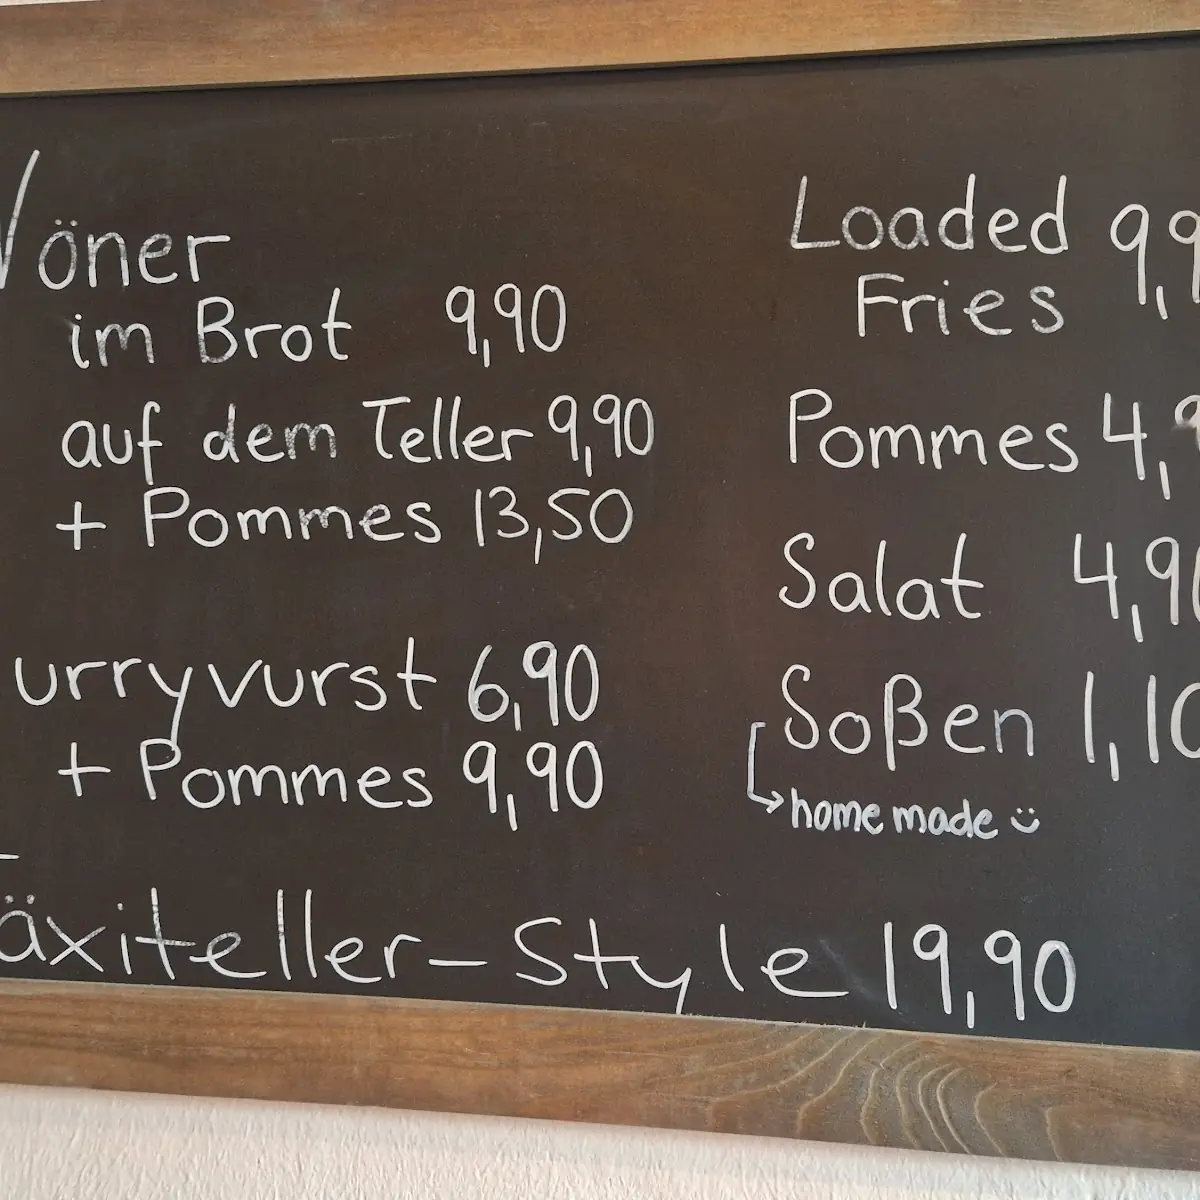 Vöner
im Brot 9,90
auf dem Teller 9,90
+ Pommes 13,50
urryvurst 6,90
+ Pommes 9,90
Täxiteller-Style 19,90
Loaded 9,9
Fries
Pommes 4,9
Salat 4,90
Soßen 1,10
home made